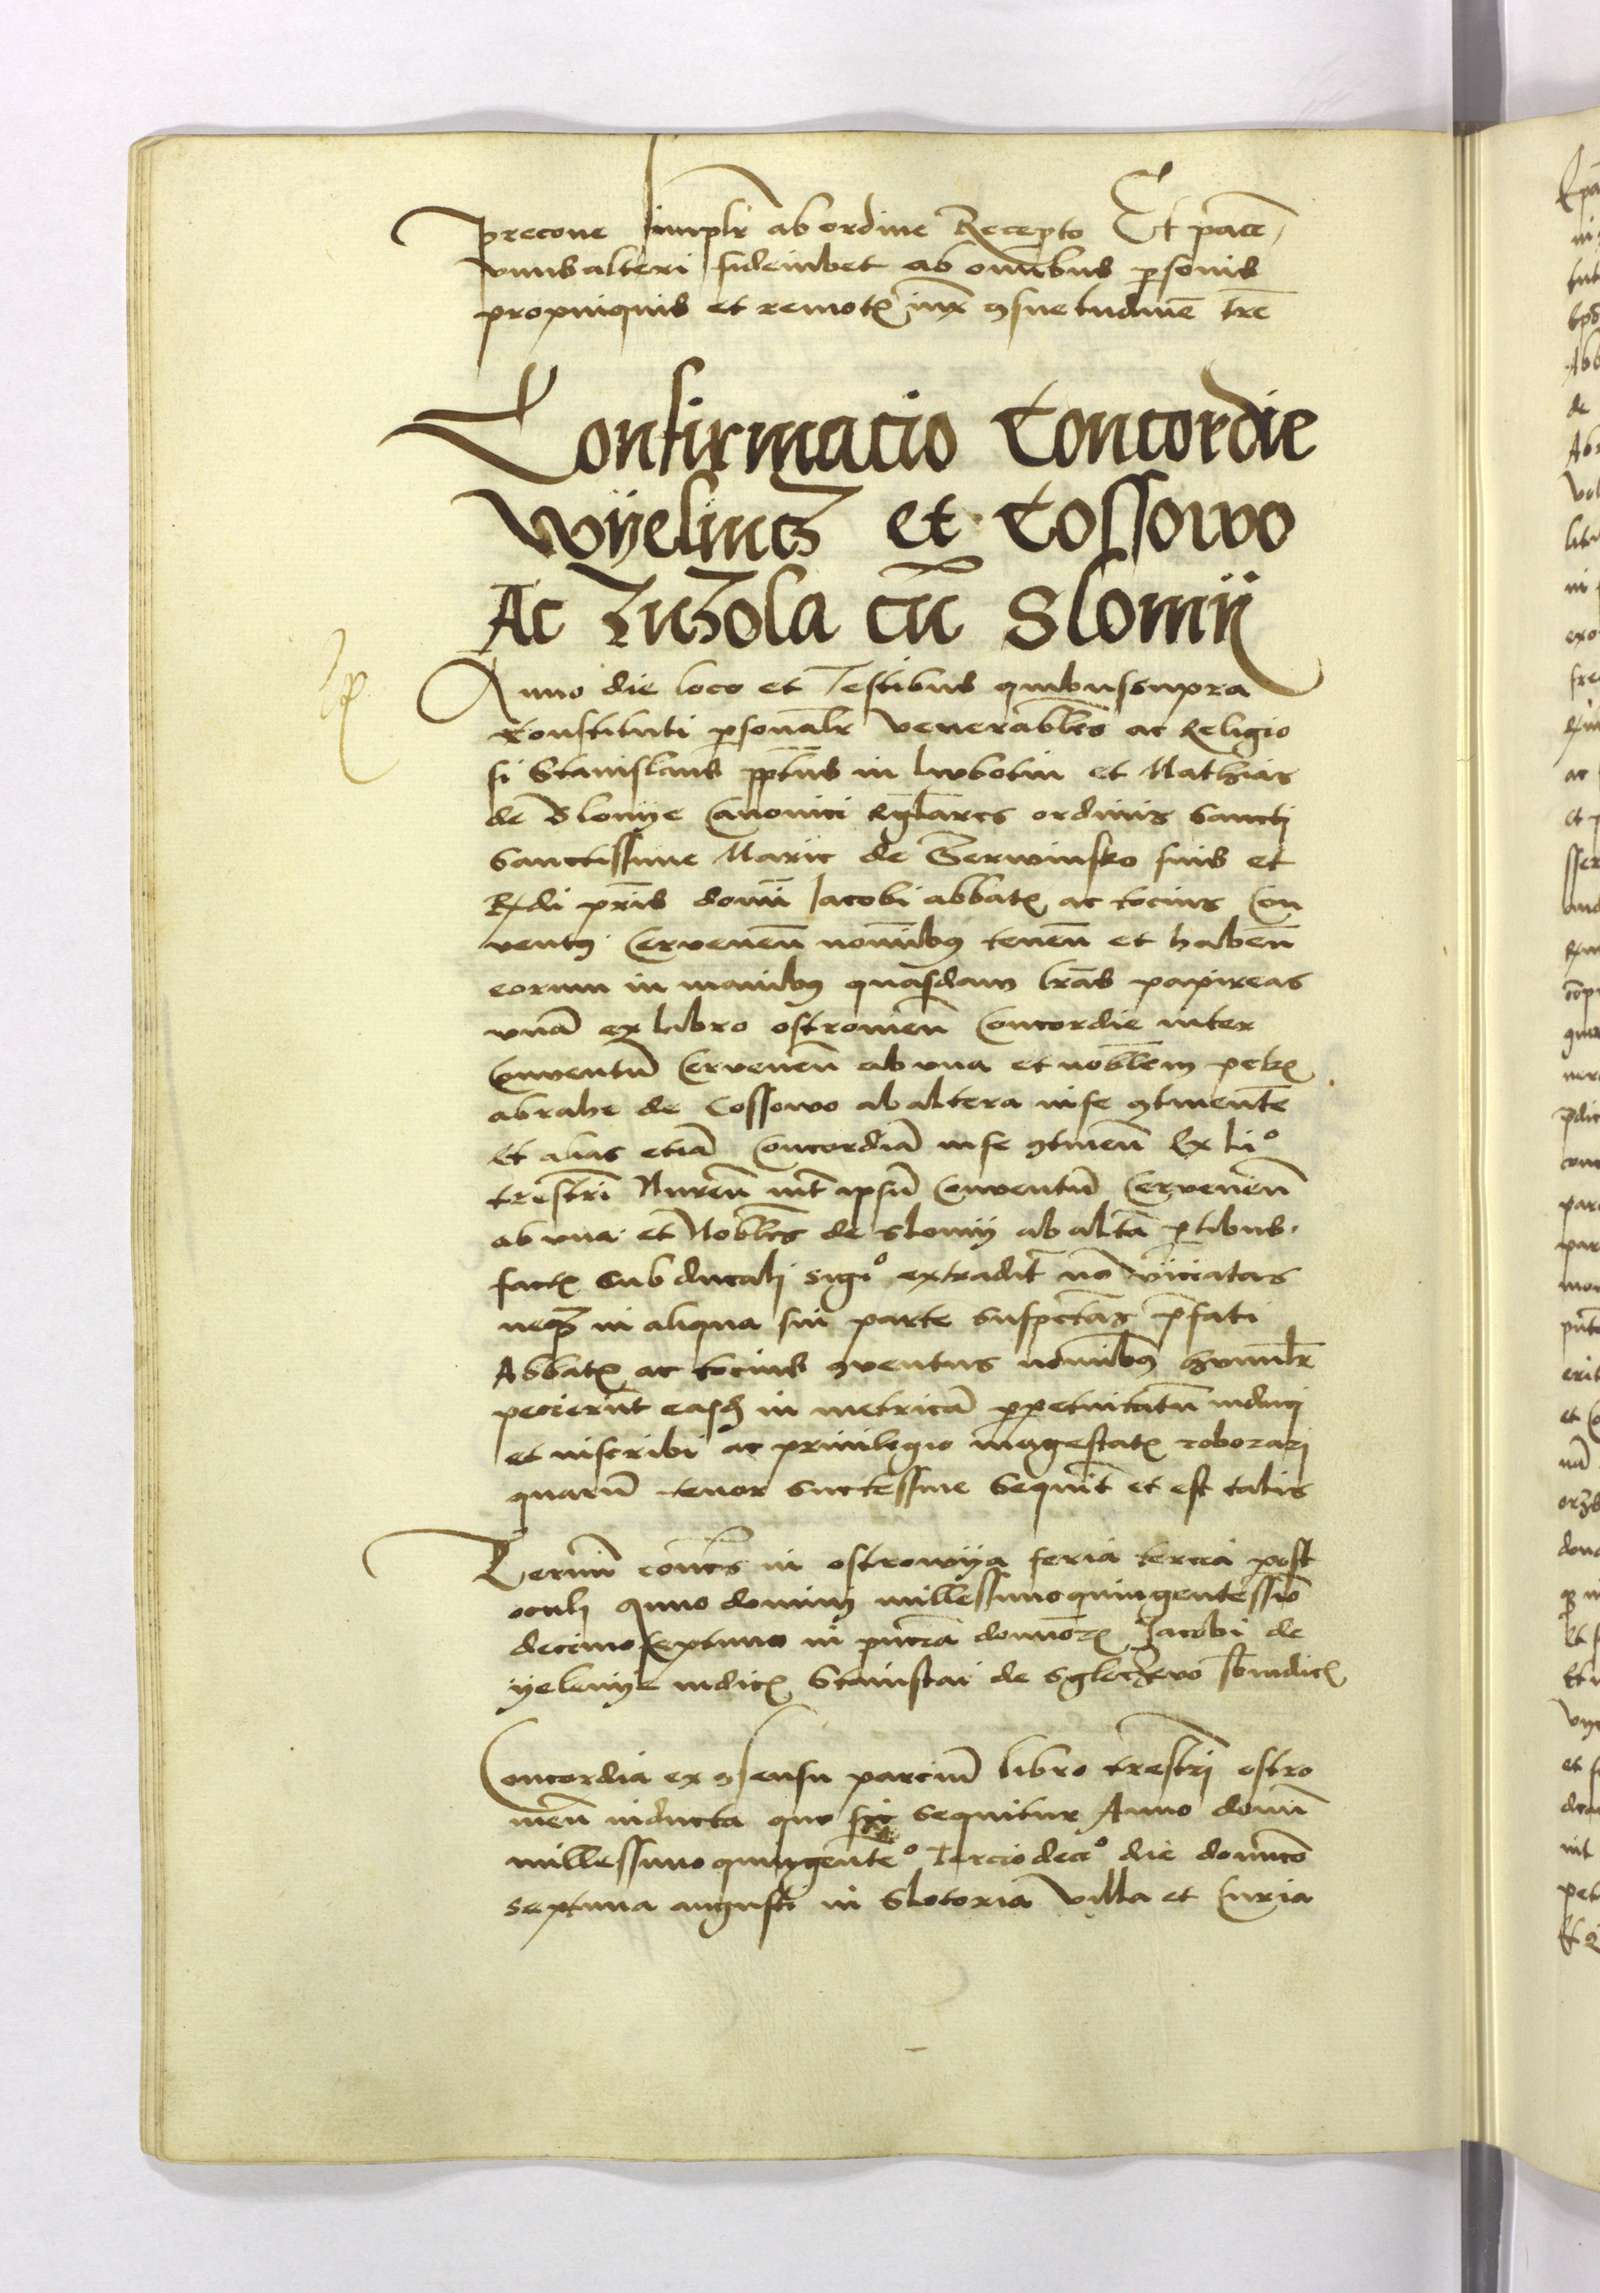 precone simplr ab ordine Recepto Et pace
unus alteri fideiubet ab omibus psonis
propinquis et remot iux gsuetudine tre
Confirmacio Concordie
Wyelincz et Cossowo
Ac Zuzola cu Slomy
Anno die loco et Testibus quibus supra
Constituti psonalr venerables ac Religio
si Stanislaus ppitus in lubotin et Mathias
de Blonye Canonici Rglares ordinis Sancti
Sanctissime Marie de Czerwinsko suis et
Rdi pris domi Jacobi abbat ac tocius Con
vent Cervenen nomibus tenen et haben
eorum in manibus quasdam lras papireas
una ex libro ostrovien Concordie inter
Conventu Cervenen ab una et nobilem petr
abrahe de Cossowo ab altera in se gtinente
Et alias etia Concordia in se gtinen Ex lio
trestri Nuren int ipsu Conventu Cervenen
ab una et Nobles de Slomy ab alta ptibus
fact sub ducali sigo extradit no viciatas
neq in aliqua sui parte suspectas pfati
Abbat ac tocius gventus nomibus humilr
pecierunt easd in metrica ppetuitatu induci
et inscribi ac privilegio magestat roborari
quaru tenor successive sequit et est talis
Termi in ostrowya feria tercia post
oculi Anno domini millessimo quingentessio
decimo septimo in pncia domor Jacobi de
yelenye iudic Stanislai de Sgleczewo sbiudic
Concordia ex gsensu parciu libro trestri ostro
vien inducta que sic sequitur Anno domi
millessimo quingenteo Tercio decio die domico
septima augusti in Slotoria villa et Curia